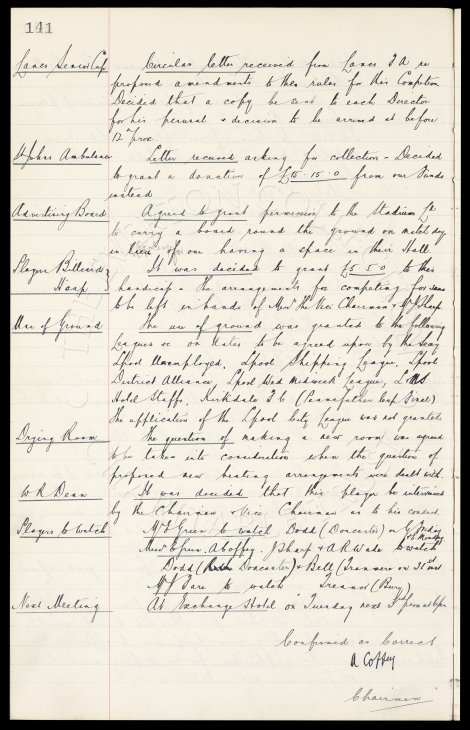 141
Lancs Senior Cup
Circular letter received from Lancs F A re
proposed amendments to the rules for this Competition
Decided that a copy be sent to each Director
for his perusal & decision to be arrived at before
12th prox.
St Johns Ambulance
Letter received asking for collection - Decided
to grant a donation of £15-15-0 from our Funds
instead
Advertising Board
Agreed to grant permission to the Stadium Ld
to carry a board round the ground on match days
in lieu of our having a space in their Hall.
Players Billiards
Hcap
It was decided to grant £5 5 0 to this
handicap & the arrangements for competing for same
to be left in hands of Messrs the Vice Chairman & W J Sharp.
Use of Ground
The use of ground was granted to the following
Leagues on dates to be agreed upon by the Secy
Lpool Unemployed. Lpool Shipping League. Lpool
District Alliance, Lpool Wed Midweek League, LMS
Hotel Staffs. Kirkdale F C (Pennefather Cup Final)
The application of the Lpool Coty League was not granted
Drying Room
The question of making a new room was agreed
to be taken into consideration when the question of
proposed new heating arrangements were dealt with.
W R Dean
It was decided that this player be interviewed
by the Chairman & Vice Chairman as to his conduct.
Players to watch
Mr Green to watch Dodd (Doncaster) on G Friday
& E Monday
Messrs Green. A Coffey. J Sharp & A R Wade to watch
Dodd (Doncaster) & Bell (Tranmere on 31st inst
Mr to watch (Bury)
Next Meeting
At Exchange Hotel on Tuesday next
Confirmed as Correct
A Coffey
Chairman